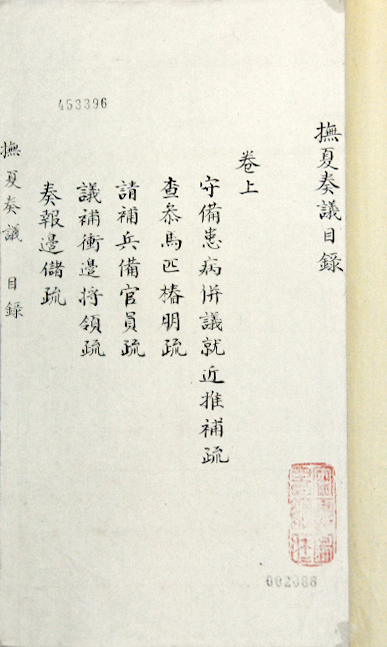 撫夏奏議目錄
卷上
守備患病併議就近推補疏
查叅馬匹樁朋疏
請補兵備官員疏
議補衝邊将領疏
奏報邊儲疏
撫夏奏議 目錄
453396
002088